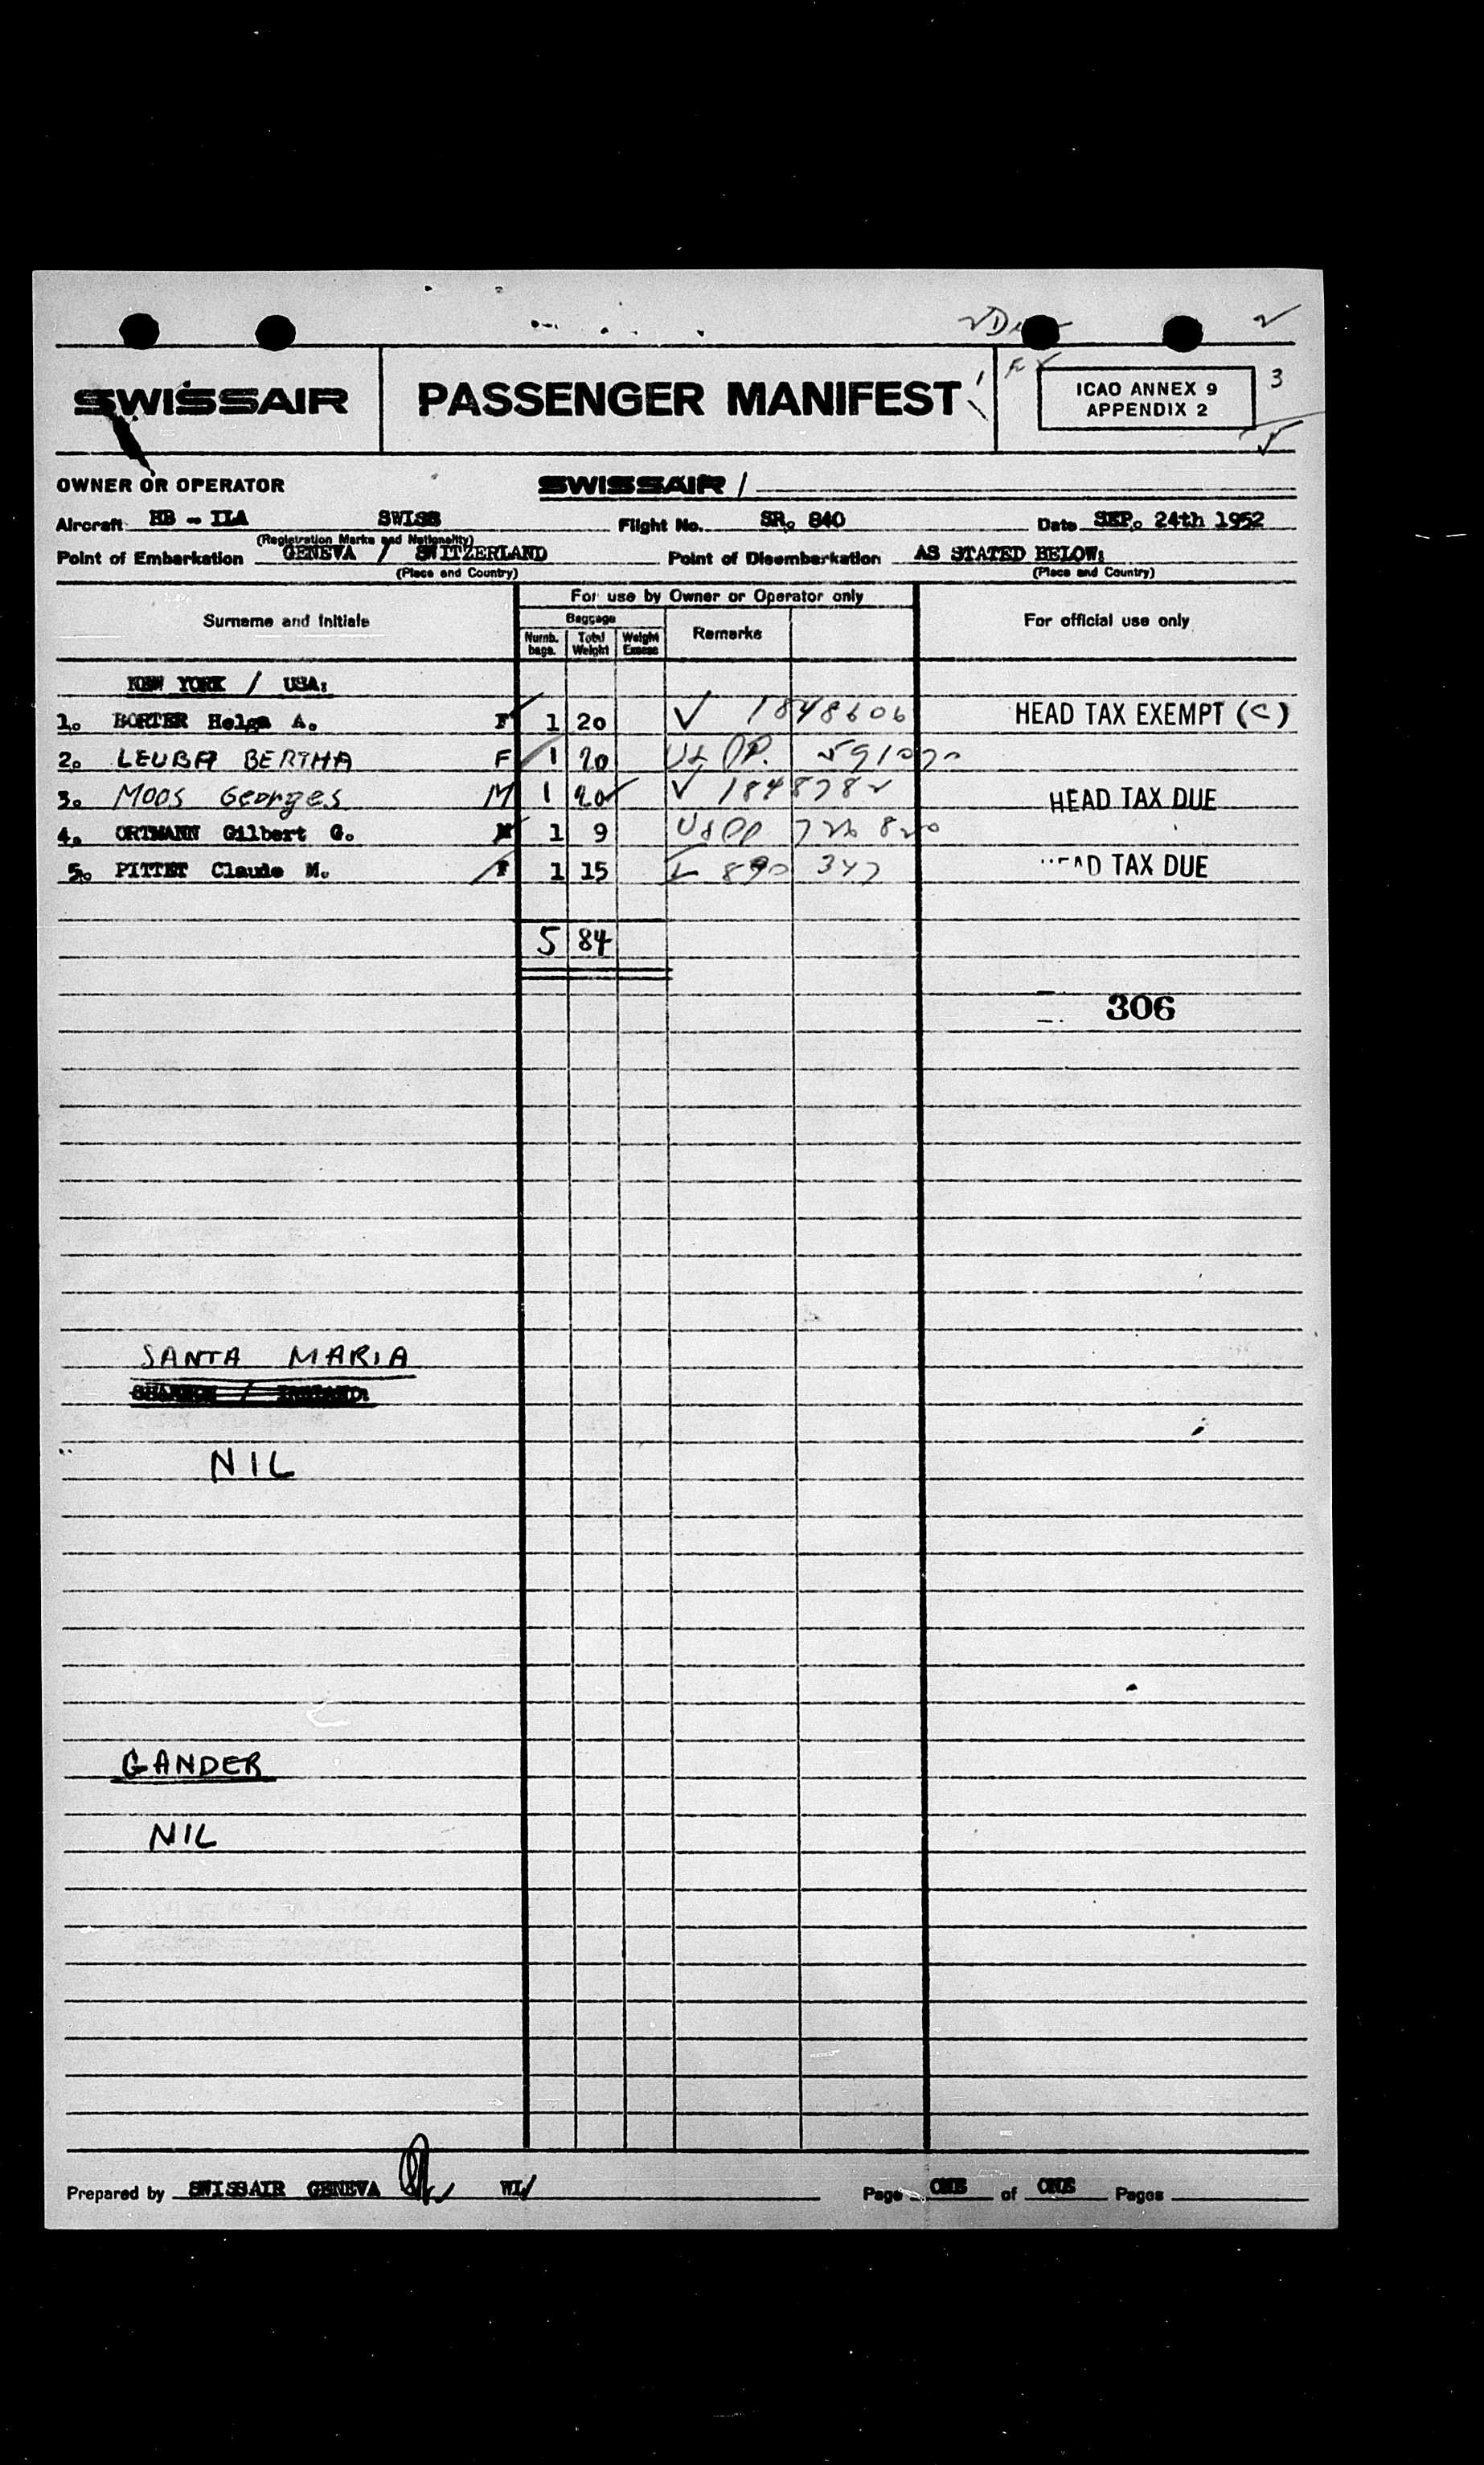 3
SWISSAIR PASSENGER MANIFEST ICAO ANNEX 9
APPENDIX 2
OWNER OR OPERATOR SWISSAIR /
Aircraft HB - ILA SWISS Flight No. SR. 840 Date SEP. 24th 1952
(Registration Marks and Nationality)
Point of Embarkation GENEVA / SWITZERLAND Point of Disembarkation AS STATED BELOW:
(Place and Country) (Place and Country)
For use by Owner or Operator only
Surname and Initials Baggage Remarks For official use only
Numb. bags. Total Weight Weight Excess
NEW YORK / USA:
1. BORTER Helga A. F 1 20 √ 1848606 HEAD TAX EXEMPT (C)
2. LEUBA BERTHA F 1 20
3. MOOS Georges M 1 20 √ HEAD TAX DUE
4. ORTMANN Gilbert G. M 1 9
5. PITTET Claude M. 1 15 890 347 TAX DUE
5 84
306
SANTA MARIA
SHANNON / IRELAND:
NIL
GANDER
NIL
Prepared by SWISSAIR GENEVA WI/ Page ONE of ONE Pages